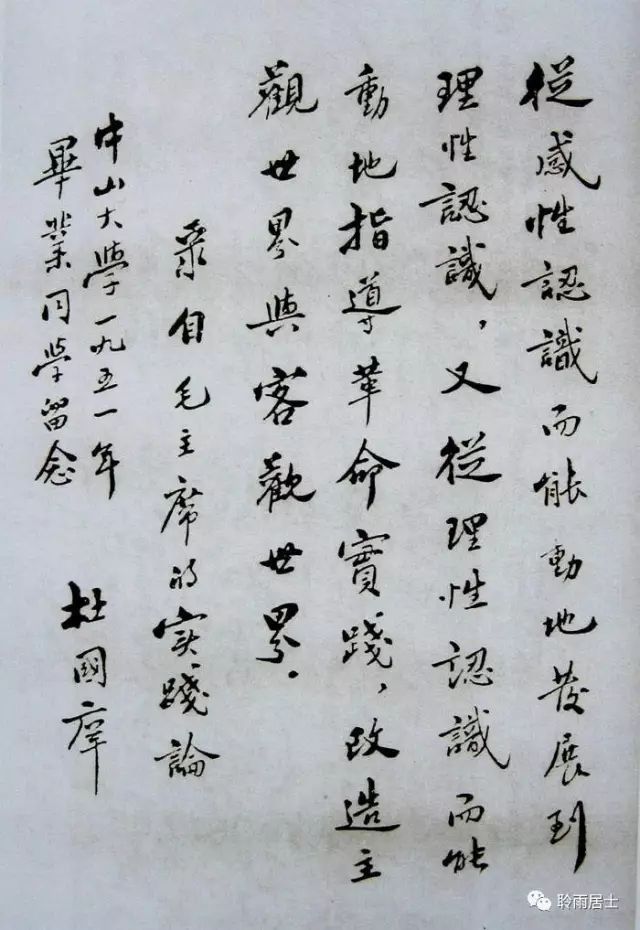 從感性認識而能動地發展到
理性認識，又從理性認識而能
動地指導革命實踐，改造主
觀世界與客觀世界．
录自毛主席的实踐論
中山大學一九五一年
畢業同學留念
杜國庠
聆雨居士